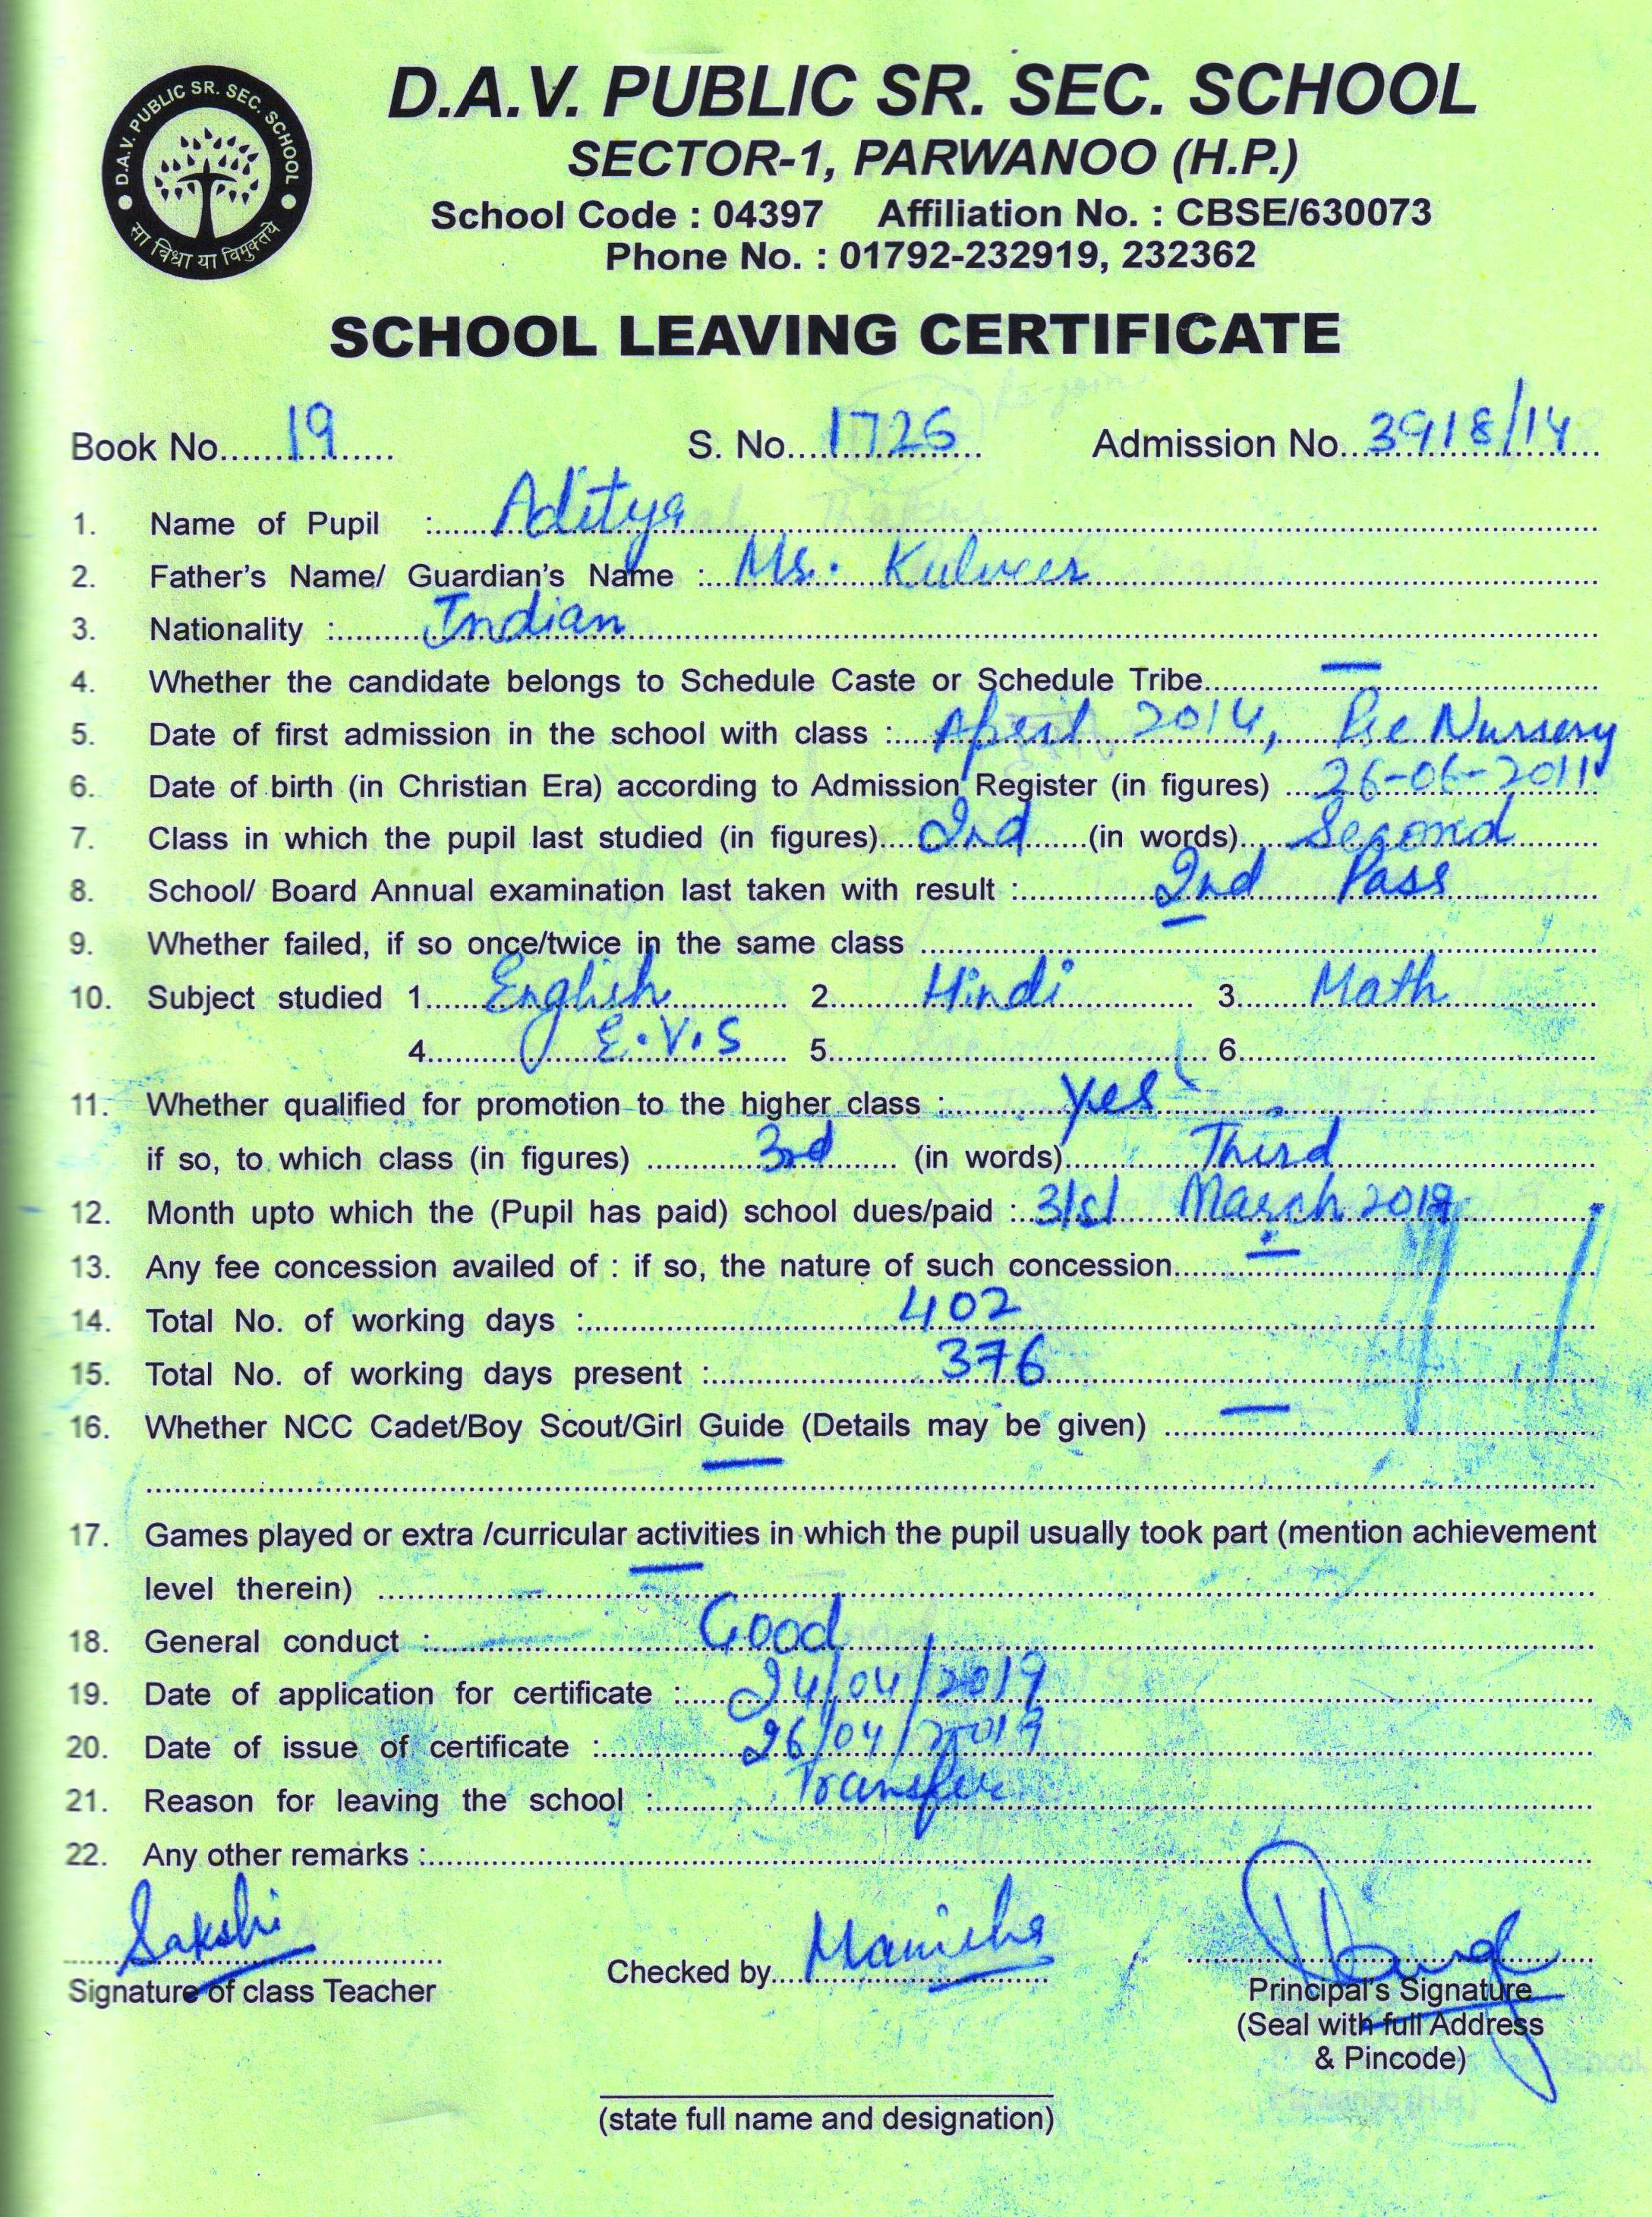 D.A.V. PUBLIC SR. SEC. SCHOOL
सा विद्या या विमुक्तये
D.A.V. PUBLIC SR. SEC. SCHOOL
SECTOR-1, PARWANOO (H.P.)
School Code : 04397 Affiliation No. : CBSE/630073
Phone No. : 01792-232919, 232362
SCHOOL LEAVING CERTIFICATE
Book No. 19 S. No. 1726 Admission No. 3918/14
1. Name of Pupil : Aditya
2. Father's Name/ Guardian's Name : Mr. Kulveer
3. Nationality : Indian
4. Whether the candidate belongs to Schedule Caste or Schedule Tribe —
5. Date of first admission in the school with class : April 2014, Pre Nursery
6. Date of birth (in Christian Era) according to Admission Register (in figures) 26-06-2011
7. Class in which the pupil last studied (in figures) 2nd (in words) Second
8. School/ Board Annual examination last taken with result : 2nd Pass
9. Whether failed, if so once/twice in the same class —
10. Subject studied 1. English 2. Hindi 3. Math
4. E.V.S 5. 6.
11. Whether qualified for promotion to the higher class : yes
if so, to which class (in figures) 3rd (in words) Third
12. Month upto which the (Pupil has paid) school dues/paid : 31st March 2019
13. Any fee concession availed of : if so, the nature of such concession —
14. Total No. of working days : 402
15. Total No. of working days present : 376
16. Whether NCC Cadet/Boy Scout/Girl Guide (Details may be given) —
—
17. Games played or extra /curricular activities in which the pupil usually took part (mention achievement
level therein) —
18. General conduct : Good
19. Date of application for certificate : 24/04/2019
20. Date of issue of certificate : 26/04/2019
21. Reason for leaving the school : Transfer
22. Any other remarks :
Sakshi
Signature of class Teacher
Checked by Manisha
Principal's Signature
(Seal with full Address
& Pincode)
(state full name and designation)